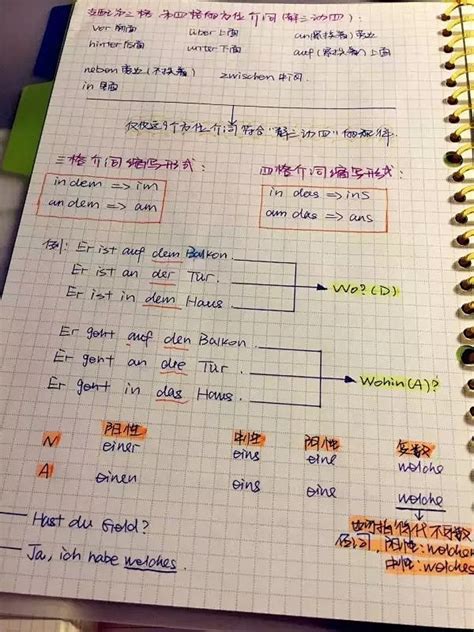 支配第三格 第四格的方位介词(静三动四):
vor 前面 über 上面 an(紧挨着)旁边
hinter 后面 unter 下面 auf(紧挨着)上面
neben 旁边(不挨着) zwischen 中间.
in 里面
仅仅这9个方位介词符合"静三动四"的规律.
三格介词缩写形式: 四格介词缩写形式:
in dem => im in das => ins
an dem => am am das => ans
例: Er ist auf dem Balkon.
Er ist an der Tür.
Er ist in dem Haus
Wo? (D)
Er geht auf den Balkon.
Er geht an die Tür.
Er geht in das Haus.
Wohin (A)?
阳性 中性 阴性 复数
N einer eins eine welche
A einen eins eine welche
welche
也可指代不可数
名词, 阴性: welche
中性: welches
— Hast du Geld?
— Ja, ich habe welches.